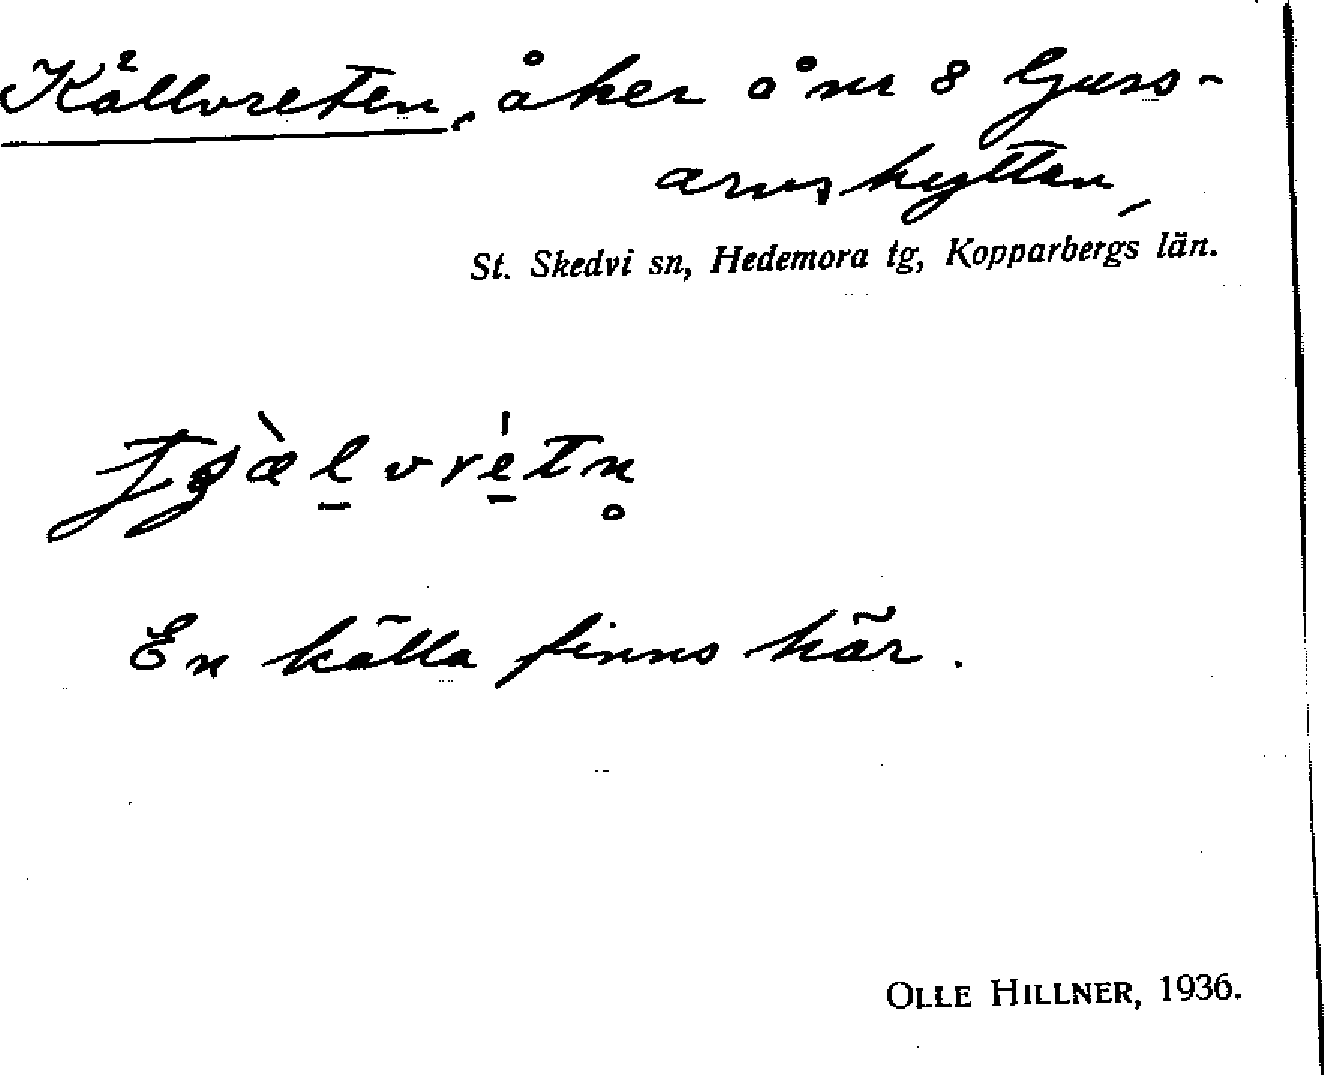 Källvreten, åker å nr 8 Ljus-
arnshyttan,
St. Skedvi sn, Hedemora tg, Kopparbergs län.
En källa finns här.
OLLE HILLNER, 1936.